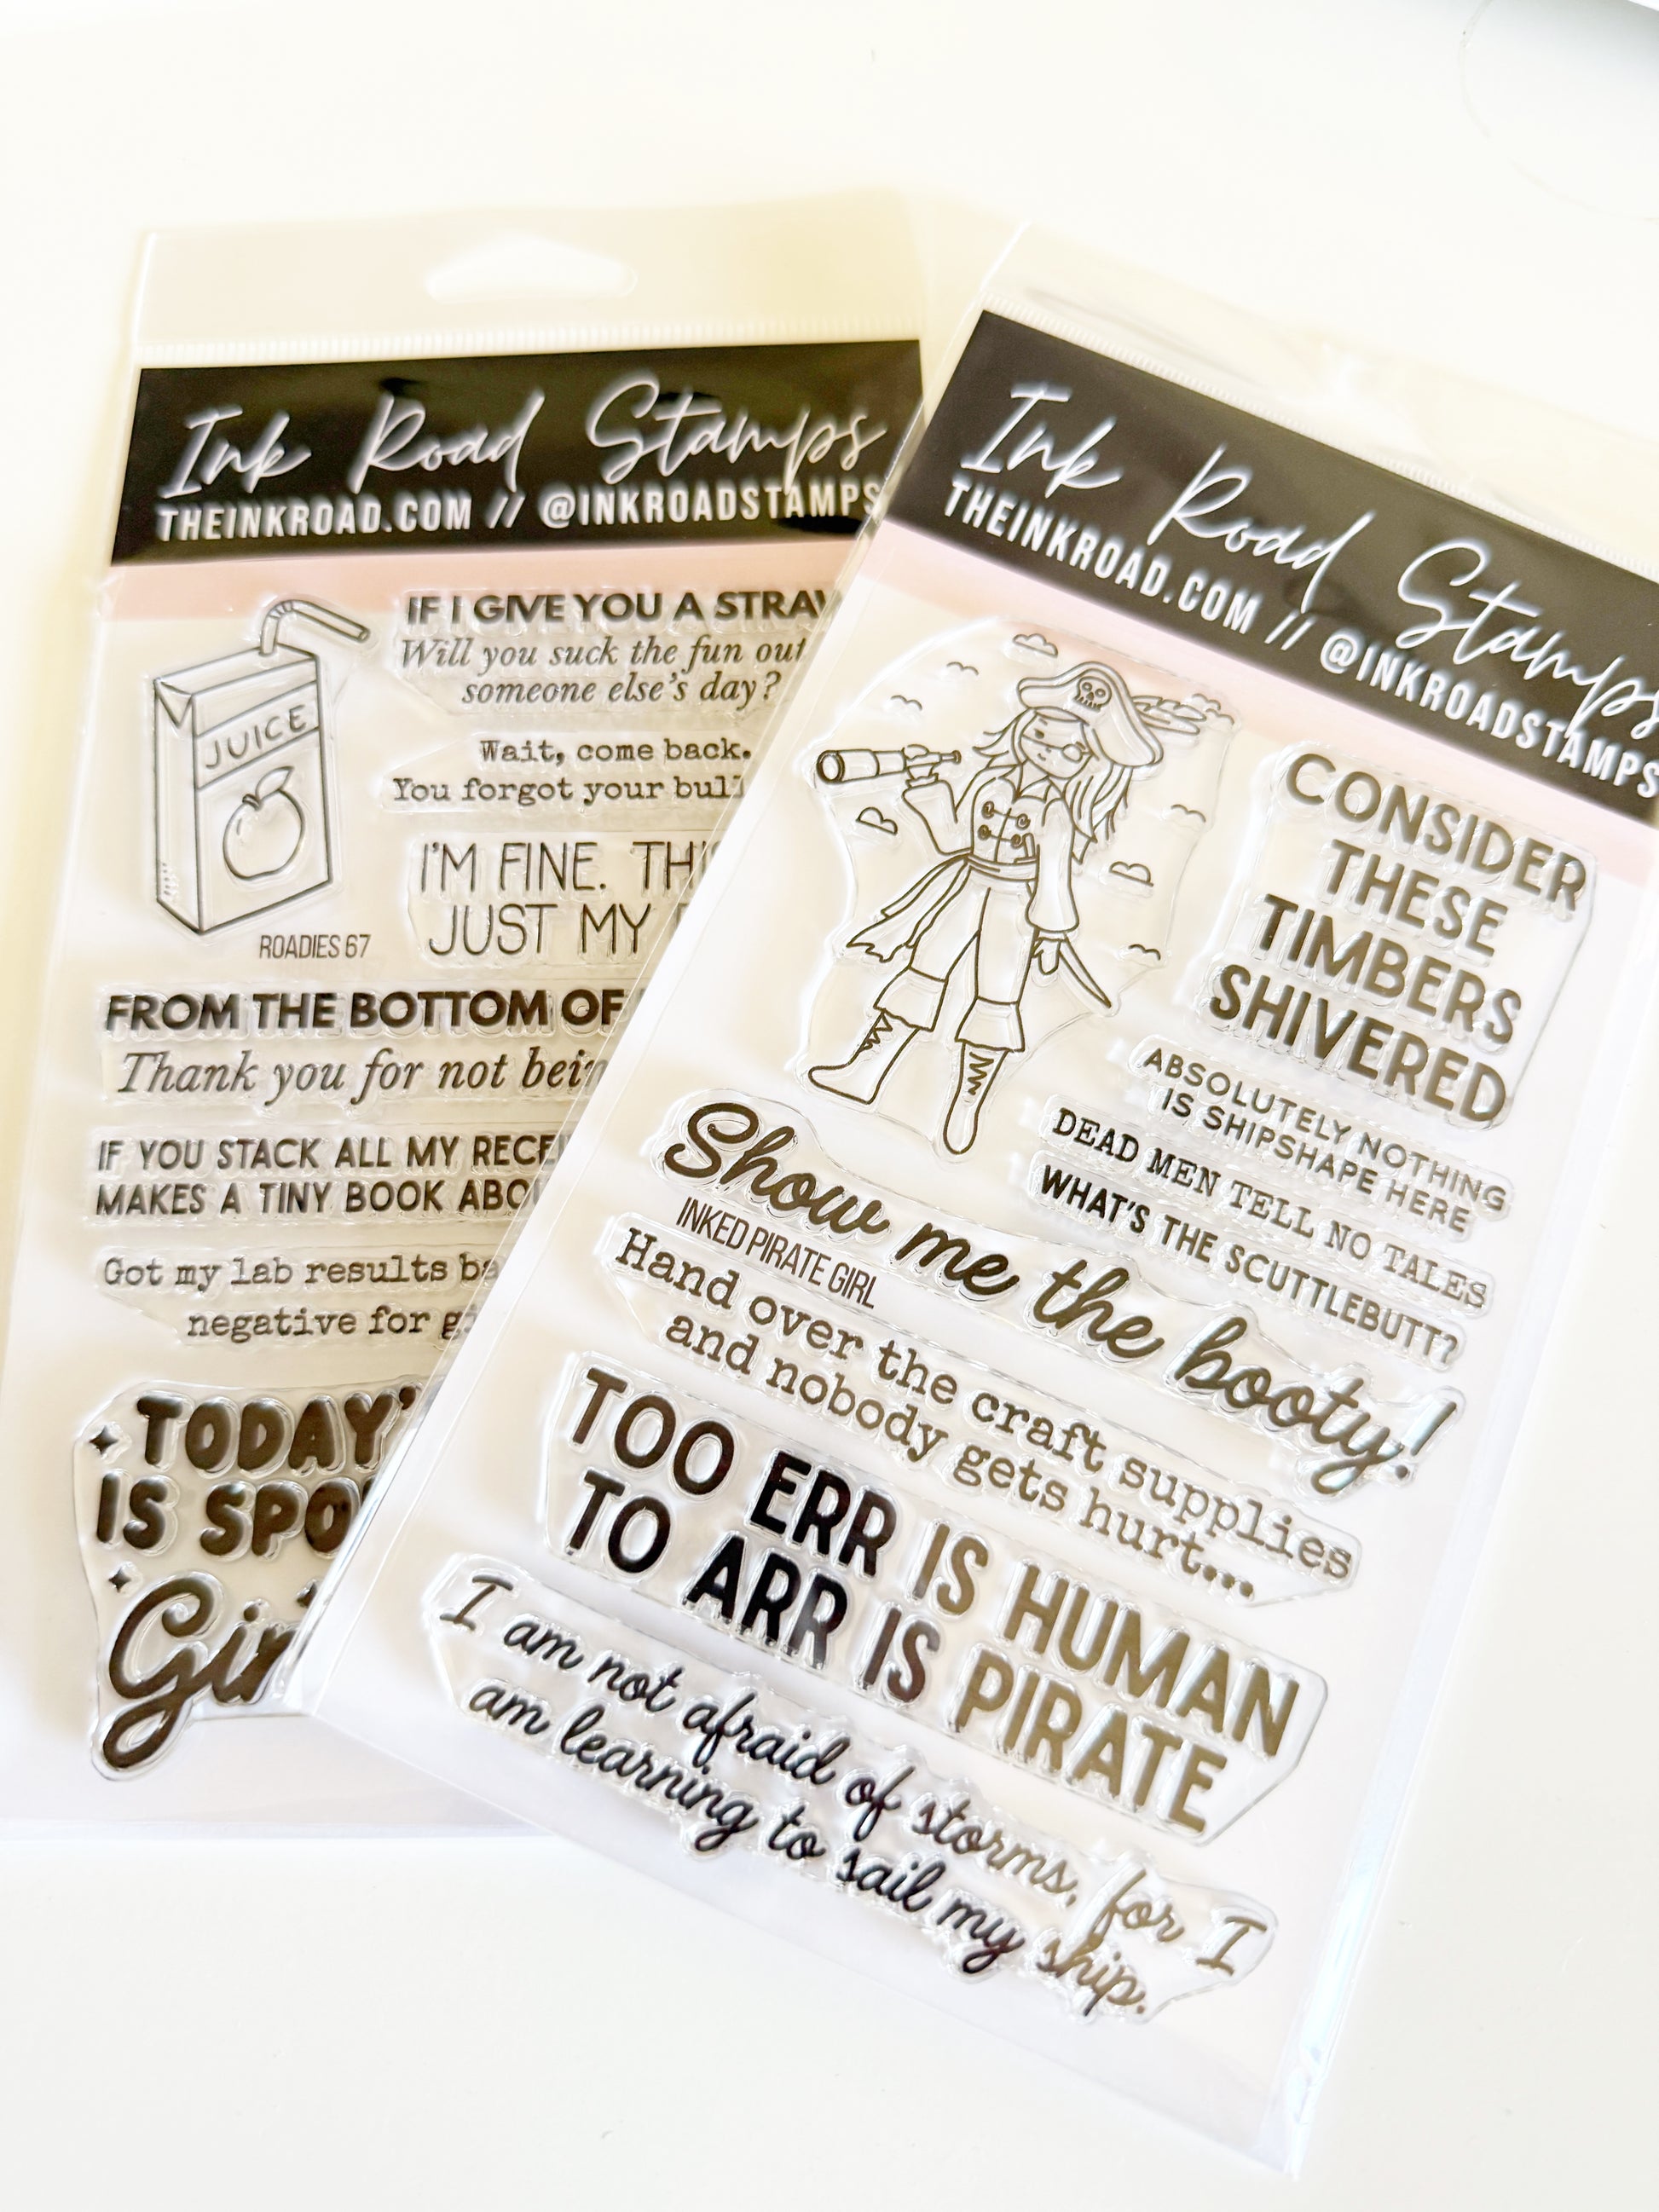 Ink Road Stamps
THEINKROAD.COM // @INKROADSTAMPS
JUICE
IF I GIVE YOU A
Will you suck the fun out
someone else's day?
Wait, come back.
You forgot your
I'M FINE.
JUST MY
ROADIES 67
FROM THE BOTTOM OF
Thank you for not
IF YOU STACK ALL MY
MAKES A TINY BOOK
Got my lab results
negative for
TODAY'
IS
Ink Road Stamps
THEINKROAD.COM // @INKROADSTAMPS
CONSIDER
THESE
TIMBERS
SHIVERED
ABSOLUTELY NOTHING
IS SHIPSHAPE HERE
DEAD MEN TELL NO TALES
WHAT'S THE SCUTTLEBUTT?
Show me the booty!
INKED PIRATE GIRL
Hand over the craft supplies
and nobody gets hurt...
TOO ERR IS HUMAN
TO ARR IS PIRATE
I am not afraid of storms, for I
am learning to sail my ship.